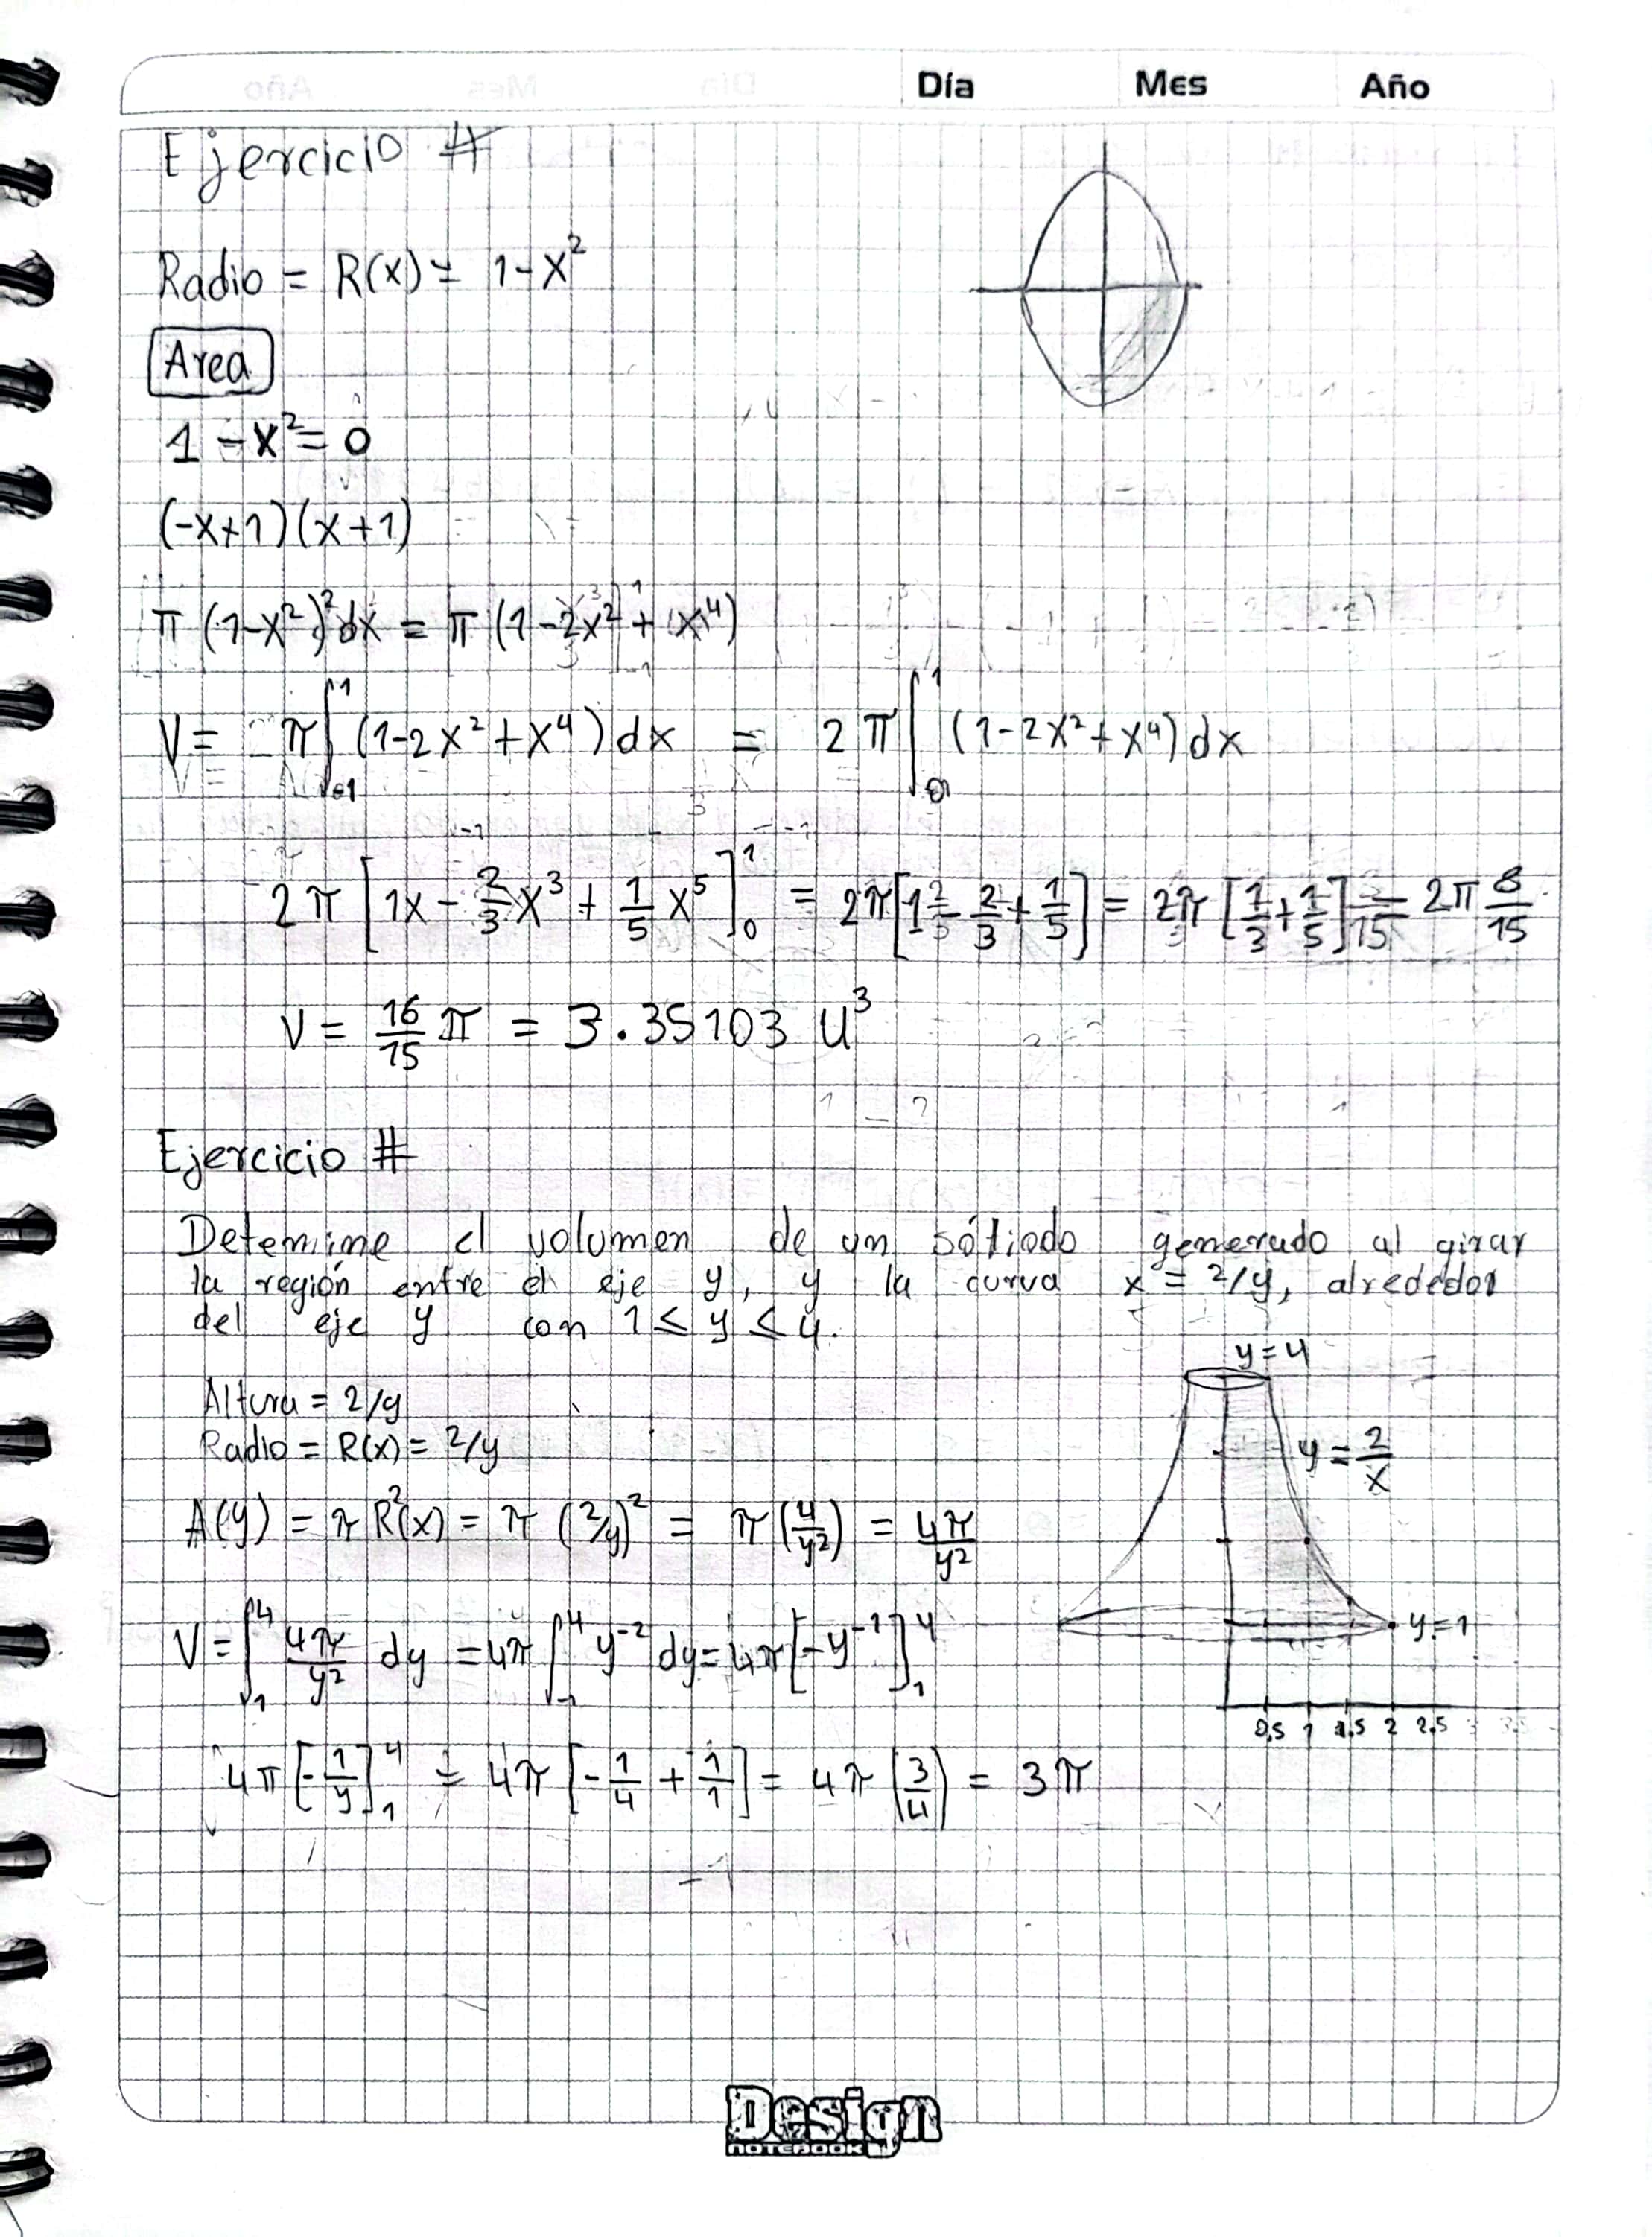 Día Mes Año
Ejercicio #
Radio = R(x) = 1-x²
Area
1 - x² = 0
(-x+1)(x+1)
π (1-x²)² dx = π (1-2x² + x⁴)
V = π ∫₋₁¹ (1-2x²+x⁴) dx = 2π ∫₀¹ (1-2x²+x⁴) dx
2π [1x - 2/3 x³ + 1/5 x⁵]₀¹ = 2π [1 - 2/3 + 1/5] = 2π [1/3 + 1/5] = 2π 8/15
V = 16/15 π = 3.35103 U³
Ejercicio #
Determine el volumen de un sótiodo generado al girar
la región entre el eje y, y la curva x = 2/y, alrededor
del eje y con 1 ≤ y ≤ 4.
y=4
Altura = 2/y
Radio = R(x) = 2/y
y = 2/x
A(y) = π R²(x) = π (2/y)² = π (4/y²) = 4π/y²
V = ∫₁⁴ 4π/y² dy = 4π ∫₁⁴ y⁻² dy = 4π [-y⁻¹]₁⁴
y=1
0,5 1 1.5 2 2.5
4π [-1/y]₁⁴ = 4π [-1/4 + 1/1] = 4π (3/4) = 3π
Design
NOTEBOOK